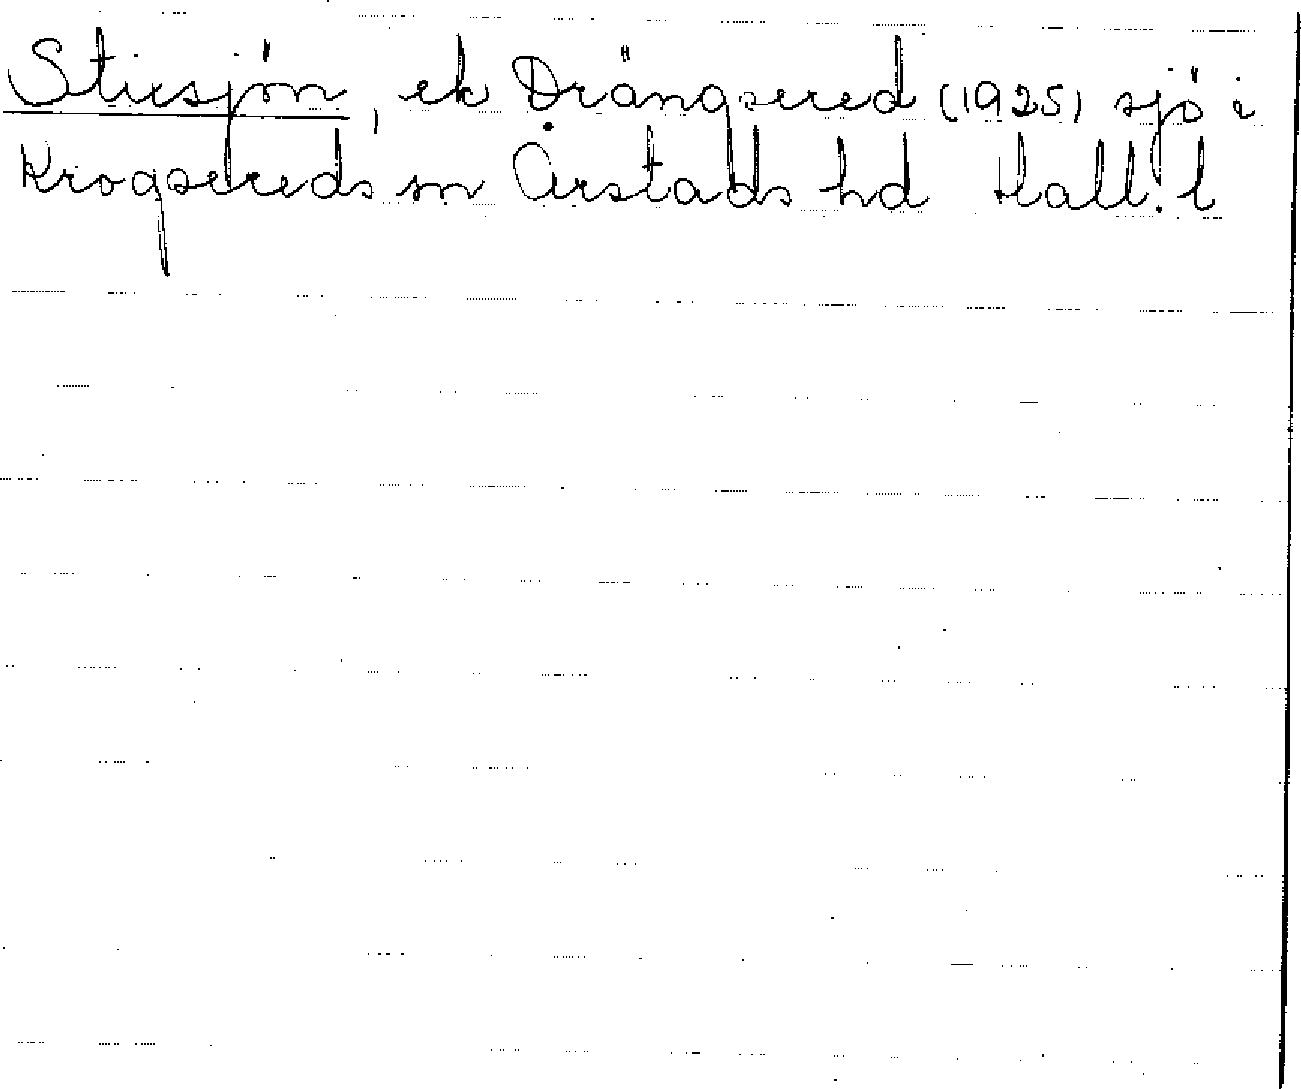 Stirsjön, ek Drängsered (1925) sjö i
Krogsereds sn Årstads hd Hall. l